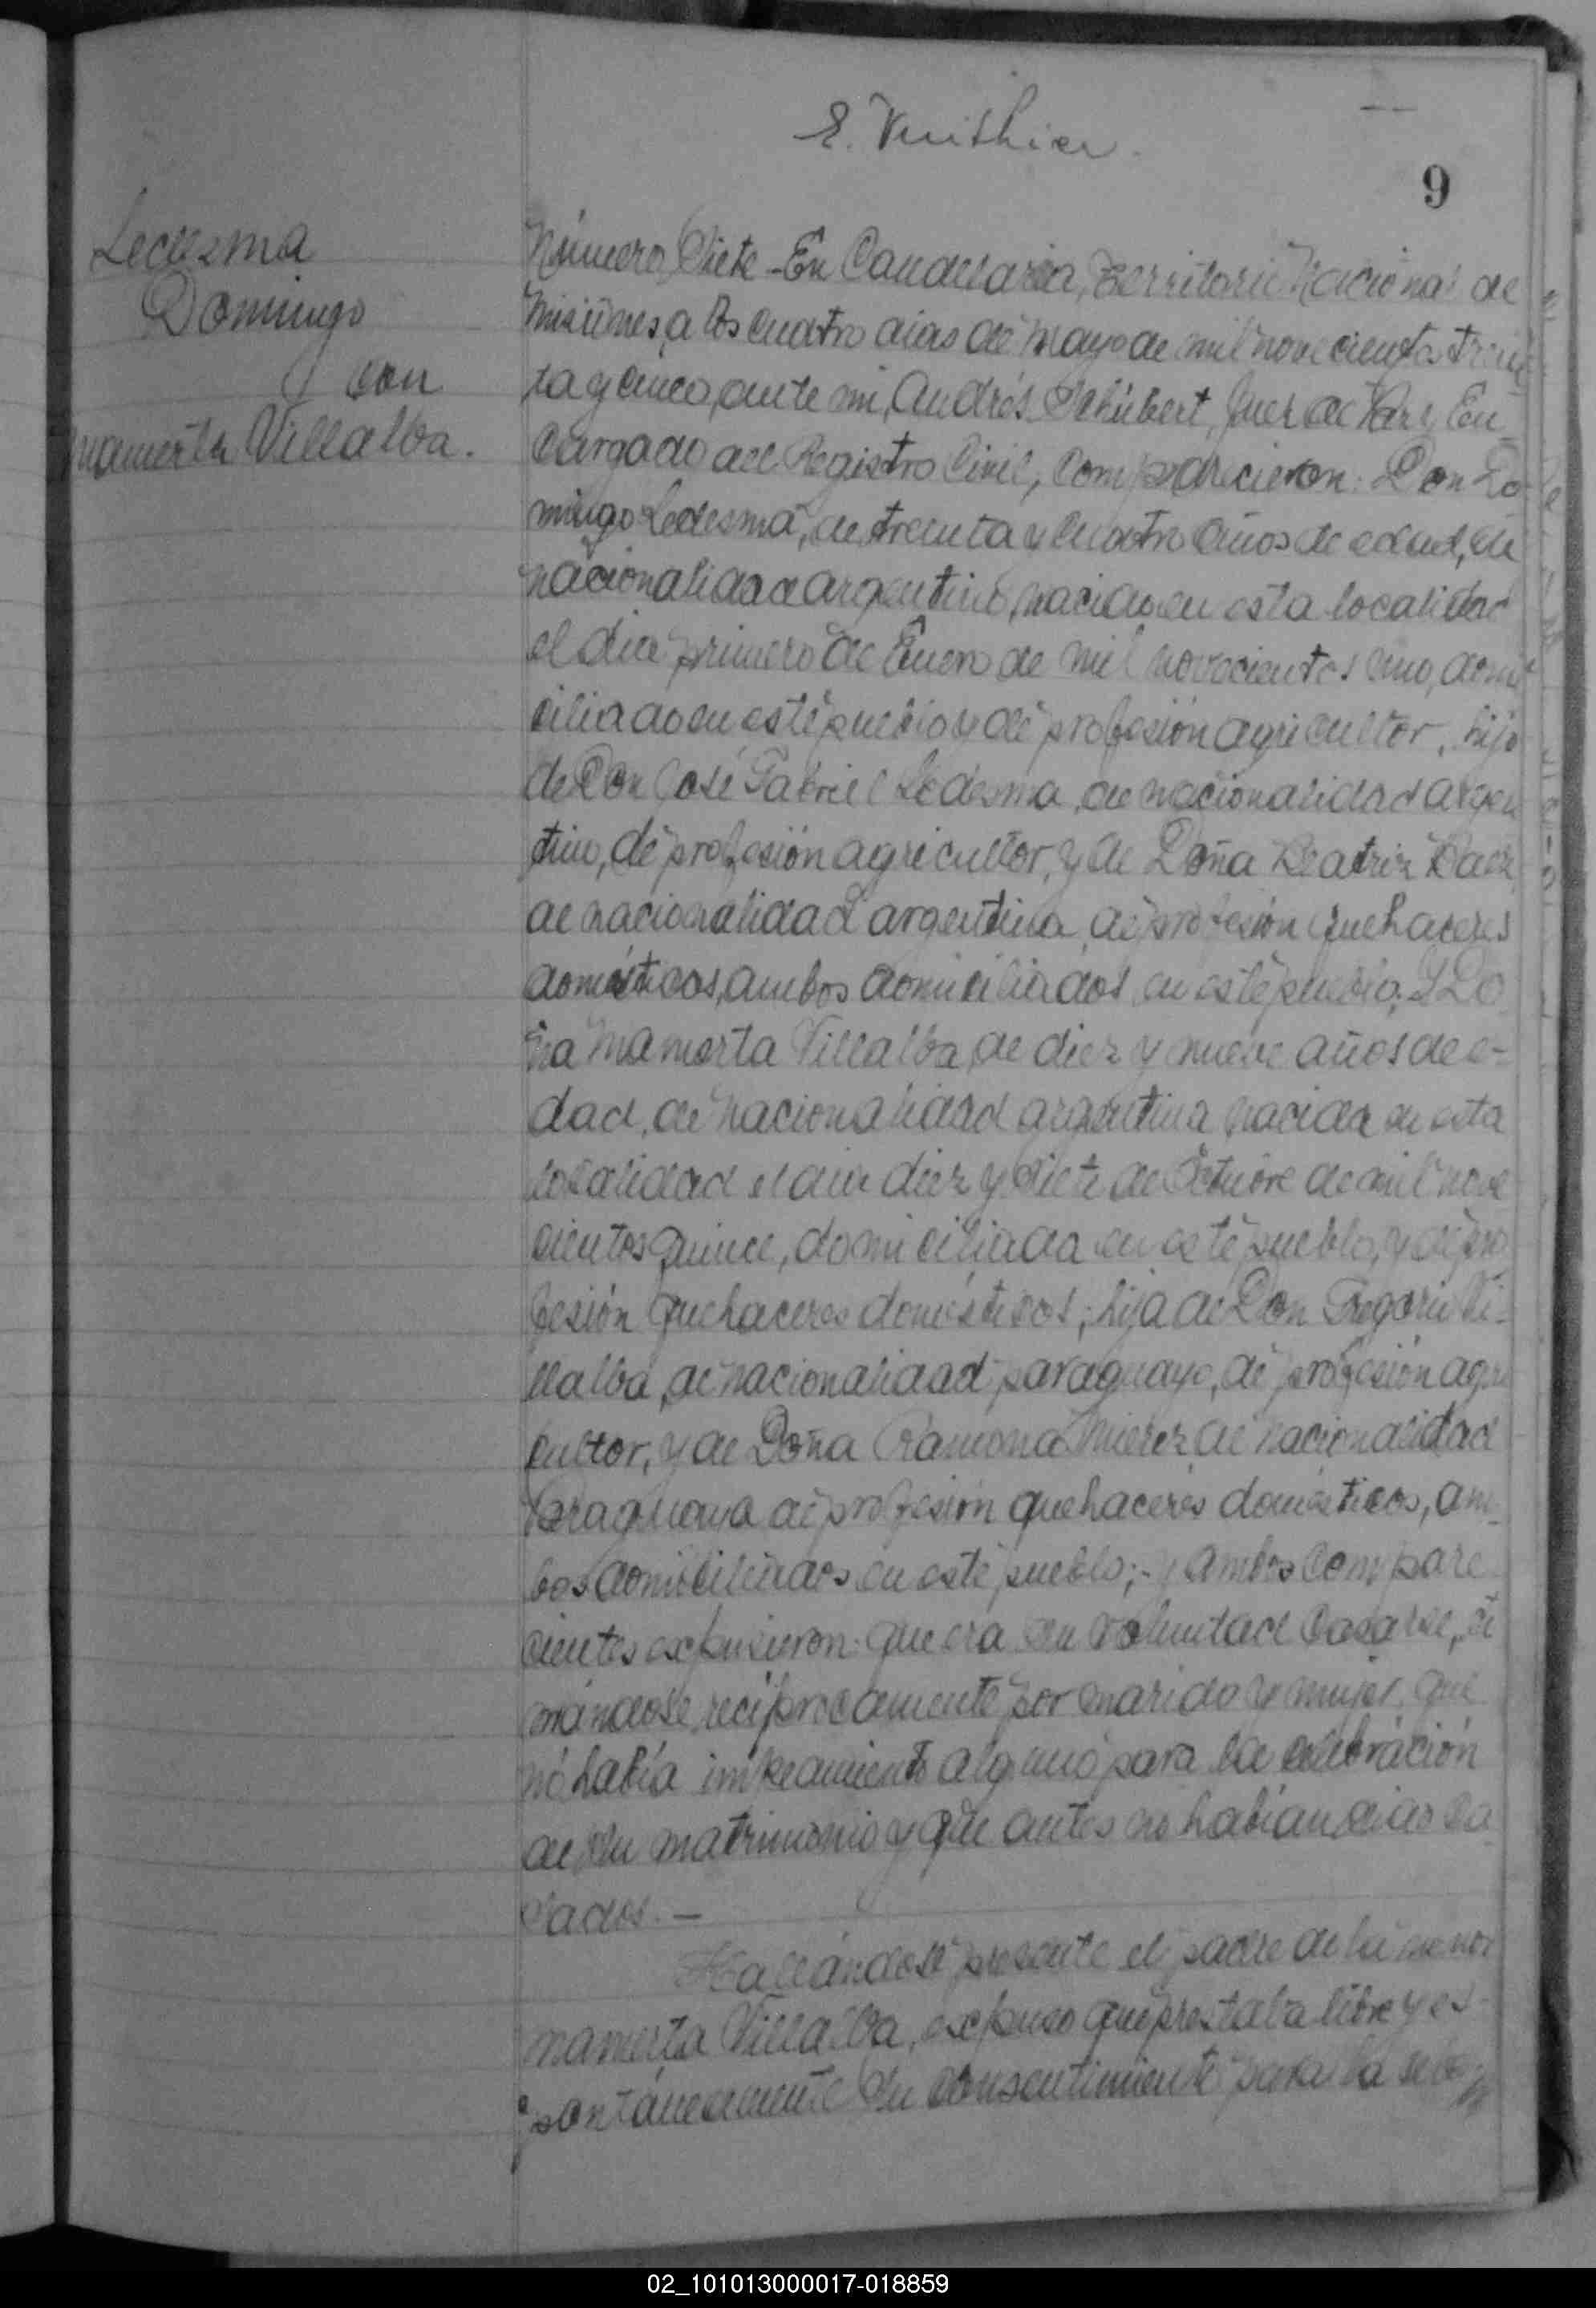 E. Vuithier
9
Ledesma
Domingo
con
Mamerta Villalba.
Número Siete - En Candelaria, Territorio Nacional de
Misiones, a los cuatro dias de Mayo de mil novecientos trein
ta y cinco, ante mi, Andrés Schubert, Juez de Paz y En
cargado del Registro Civil, Comparecieron: Don Do
mingo Ledesma, de treinta y cuatro años de edad, de
nacionalidad argentino, nacido en esta localidad
el dia primero de Enero de mil novecientos uno, domi
ciliado en este pueblo y de profesión agricultor, hijo
de Don José Gabriel Ledesma, de nacionalidad argen
tino, de profesión agricultor, y de Doña Beatriz Baez
de nacionalidad argentina, de profesión quehaceres
domésticos, ambos domiciliados en este pueblo; Y Do
ña Mamerta Villalba, de diez y nueve años de e-
dad, de nacionalidad argentina nacida en esta
localidad el dia diez y siete de Octubre de mil nove
cientos quince, domiciliada en este pueblo, y de pro
fesión quehaceres domésticos; hija de Don Gregorio Vi-
llalba, de nacionalidad paraguayo, de profesión agri
cultor, y de Doña Ramona Mierez de nacionalidad
Paraguaya de profesión quehaceres domésticos, am-
bos domiciliados en este pueblo; - y ambos compare
cientes expusieron: que era su voluntad casarse, to
mándose, reciprocamente por marido y mujer, que
no había impedimento alguno para la celebración
de su matrimonio y que antes no habían sido ca
sados. -
Hallándose presente el padre de la menor
Mamerta Villalba, expuso que prestaba libre y es-
pontáneamente su consentimiento para la cele
02_101013000017-018859